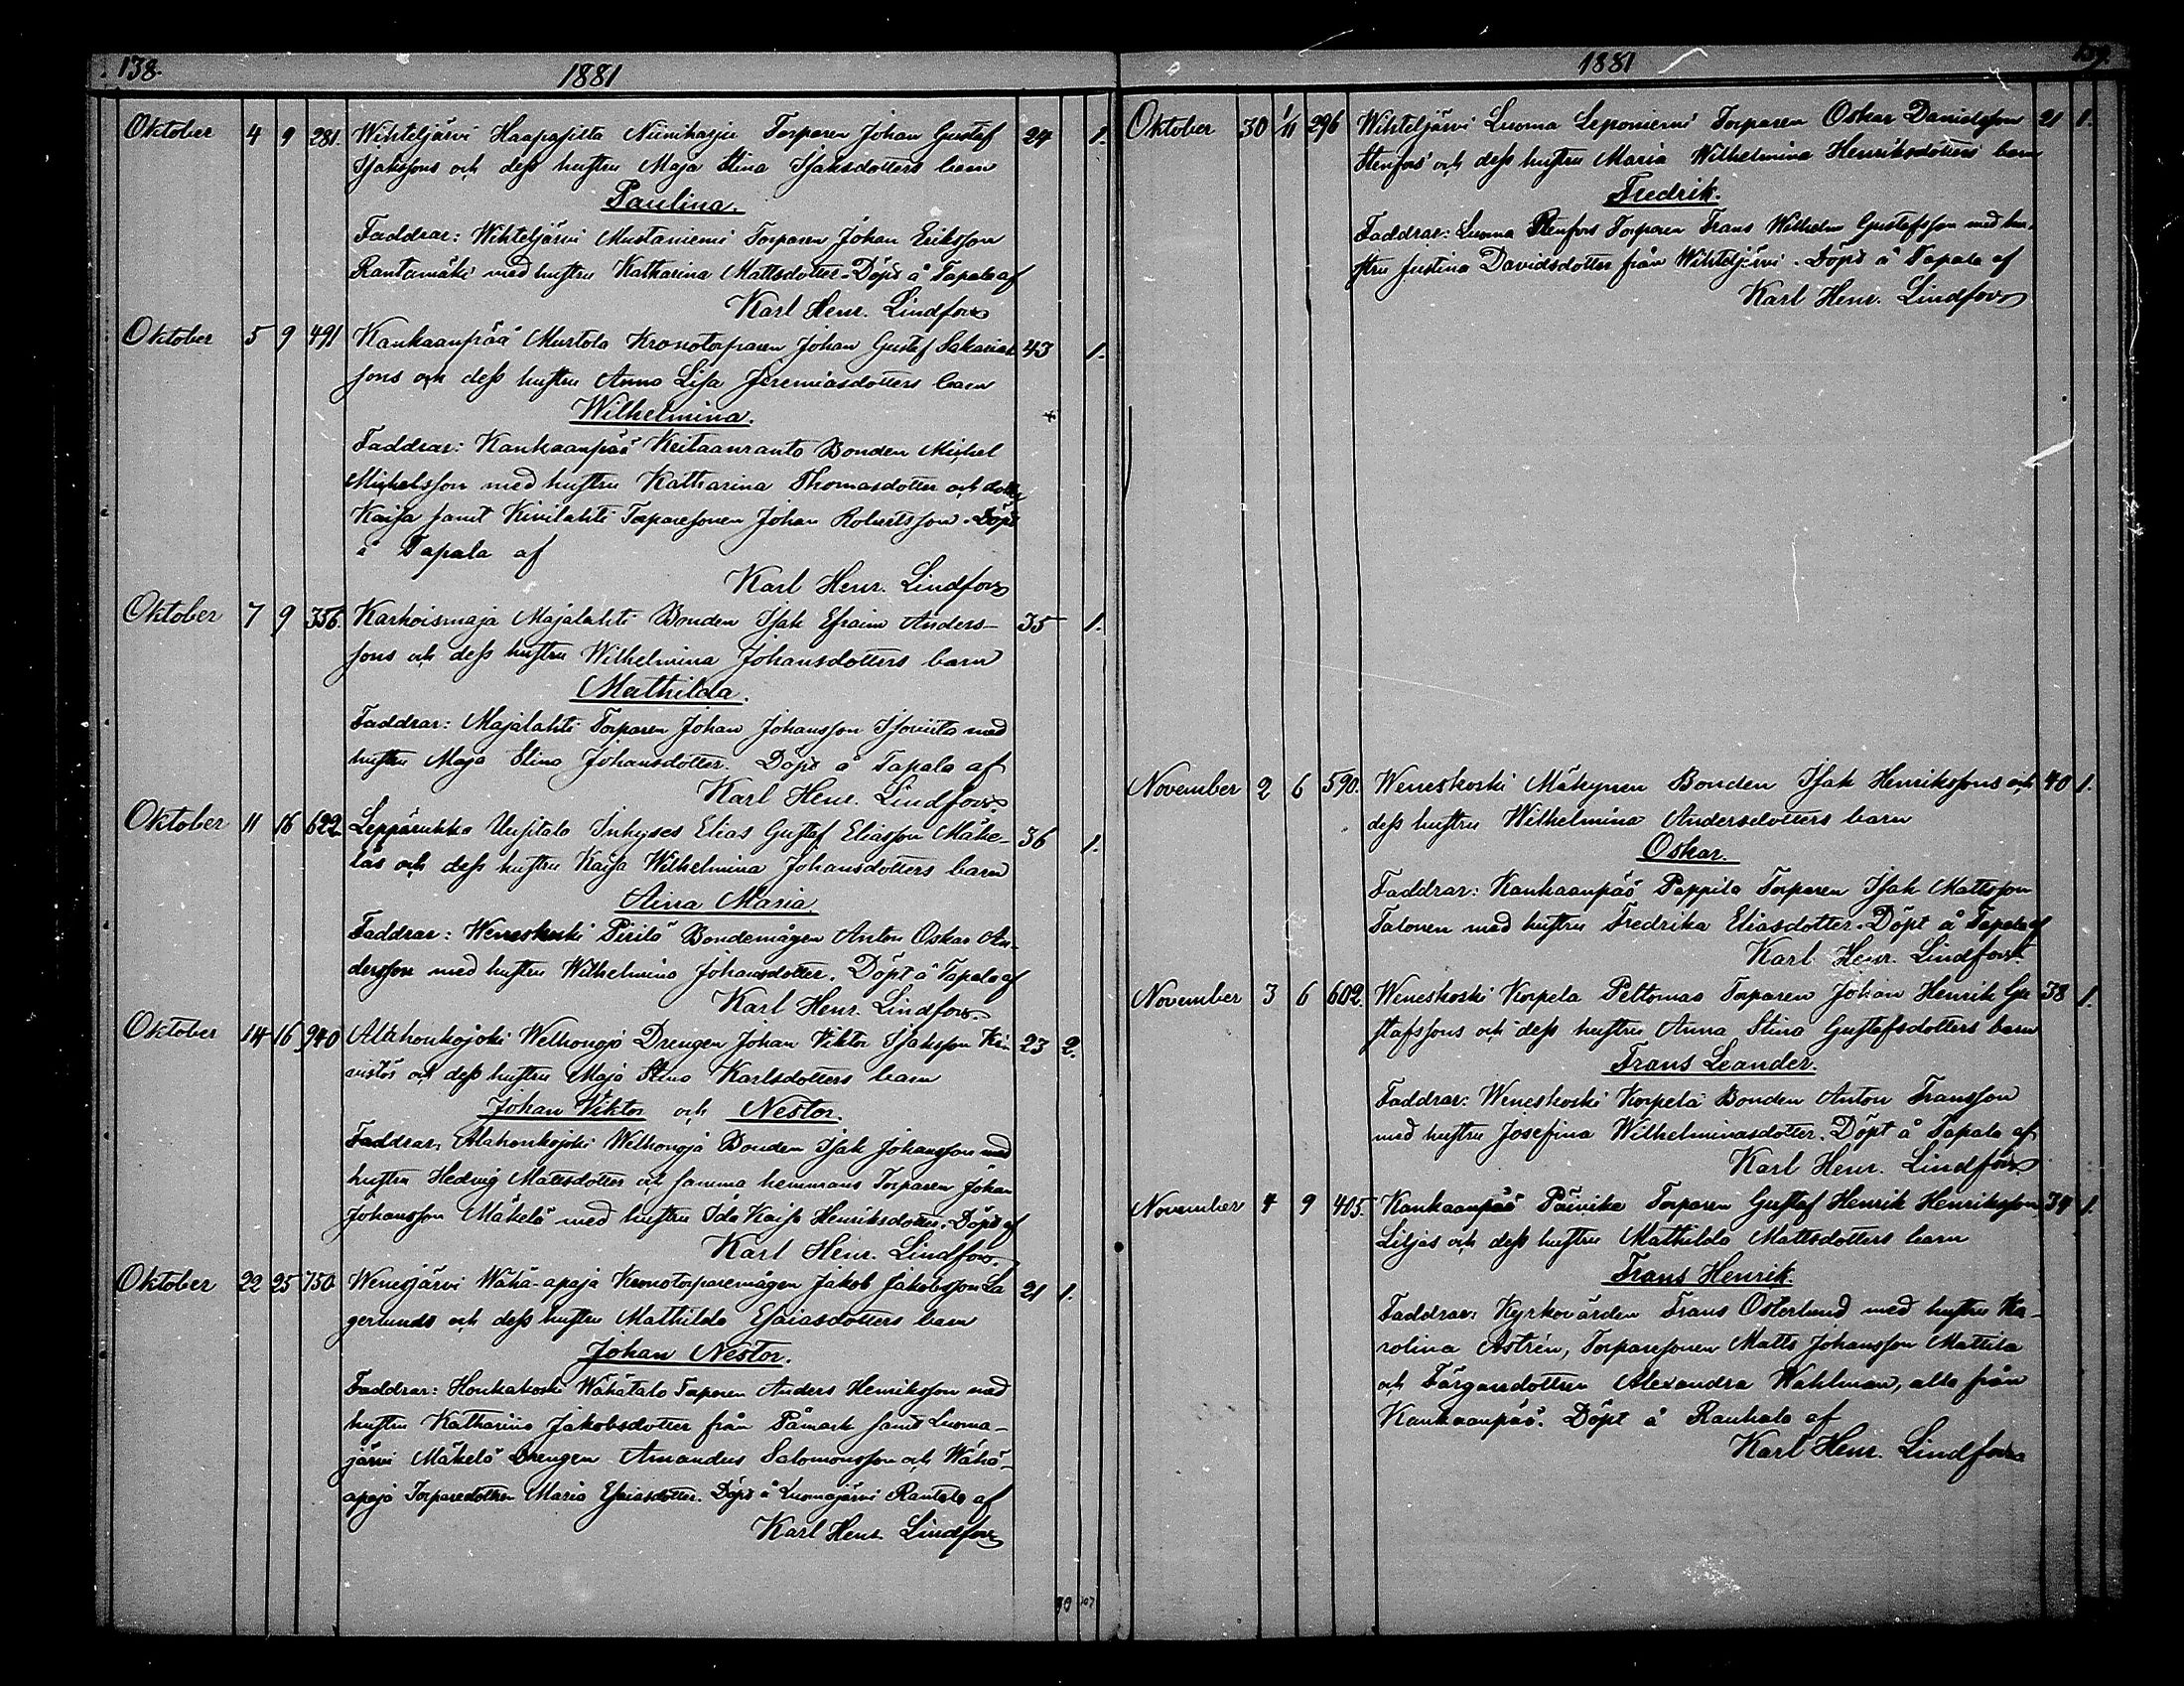 138.
1881
Oktober 4 9 281. Wihteljärvi Haapasilta Niiniharju Torparen Johan Gustaf 24 1.
Isakssons och dess hustru Maja Stina Isaksdotters barn
Paulina.
Faddrar: Wihteljärvi Mustaniemi Torparen Johan Eriksson
Rantamäki med hustru Katharina Mattsdotter. Döpt å Tapala af
Karl Henr. Lindfors
Oktober 5 9 491 Kankaanpää Murtola Kronotorparen Johan Gustaf Sakarias 43 1.
sons och dess hustru Anna Lisa Jeremiasdotters barn
Wilhelmina. +
Faddrar: Kankaanpää Keitaanranta Bonden Michel
Michelsson med hustru Katharina Thomasdotter och dotter
Kaisa samt Kivilahti Torparesonen Johan Robertsson. Döpt
å Tapala af
Karl Henr. Lindfors
Oktober 7 9 356. Karhoismaja Majalahti Bonden Isak Efraim Anders- 35 1.
sons och dess hustru Wilhelmina Johansdotters barn
Mathilda.
Faddrar: Majalahti Torparen Johan Johansson Isoviita med
hustru Maja Stina Johansdotter. Döpt å Tapala af
Karl Henr. Lindfors.
Oktober 11 16 622 Leppäruhka Uusitalo Inhyses Elias Gustaf Eliasson Mäke- 36 1.
läs och dess hustru Kaisa Wilhelmina Johansdotters barn
Aina Maria.
Faddrar: Weneskoski Pirilä Bondemågen Anton Oskar An-
dersson med hustru Wilhelmina Johansdotter. Döpt å Tapala af
Karl Henr. Lindfors.
Oktober 14 16 940 Alahonkojoki Welhonoja Drengen Johan Viktor Isaksson Kii 23 2.
vistös och dess hustru Maja Stina Karlsdotters barn
Johan Viktor och Nestor.
Faddrar, Alahonkojoki Welhonoja Bonden Isak Johansson med
hustru Hedvig Mattsdotter och samma hemmans Torparen Johan
Johansson Mäkelä med hustru Ida Kaisa Henriksdotter. Döpt af
Karl Henr. Lindfors.
Oktober 22 25 750 Wenesjärvi Wähä-apaja Kronotorparemågen Jakob Jakobsson La 21 1.
gerlunds och dess hustru Mathilda Esaiasdotters barn
Johan Nestor.
Faddrar: Honkakoski Wähätalo Torparen Anders Henriksson med
hustru Katharina Jakobsdotter från Påmark samt Luoma-
järvi Mäkelä Drengen Amandus Salomonsson och Wähä-
apaja Torparedottren Maria Esaiasdotter. Döpt å Luomajärvi Rantala af
Karl Henr. Lindfors
90 107
139.
1881
Oktober 30 1/11 296 Wihteljärvi Luoma Leponiemi Torparen Oskar Davidsson 21 1.
Stenfors och dess hustru Maria Wilhelmina Henriksdotters barn
Fredrik.
Faddrar: Luoma Stenfors Torparen Frans Wilhelm Gustafsson med hu-
stru Justina Davidsdotter från Wihteljärvi. Döpt å Tapala af
Karl Henr. Lindfors
November 2 6 590. Weneskoski Mäkynen Bonden Isak Henrikssons och 40 1.
dess hustru Wilhelmina Andersdotters barn
Oskar.
Faddrar: Kankaanpää Pappila Torparen Isak Mattsson
Talonen med hustru Fredrika Eliasdotter. Döpt å Tapala af
Karl Henr. Lindfors.
November 3 6 602. Weneskoski Korpela Peltomaa Torparen Johan Henrik Gu 38 1.
stafssons och dess hustru Anna Stina Gustafsdotters barn
Frans Leander.
Faddrar: Weneskoski Korpela Bonden Anton Fransson
med hustru Josefina Wilhelminasdotter. Döpt å Tapala af
Karl Henr. Lindfors
November 4 9 405. Kankaanpää Päivike Torparen Gustaf Henrik Henriksson 34 1.
Liljas och dess hustru Mathilda Mattsdotters barn
Frans Henrik.
Faddrar: Kyrkovärden Frans Österlund med hustru Ka-
rolina Astrén, Torparesonen Matts Johansson Mattila
och Färgaredottren Alexandra Wahlman, alla från
Kankaanpää. Döpt å Rauhala af
Karl Henr. Lindfors